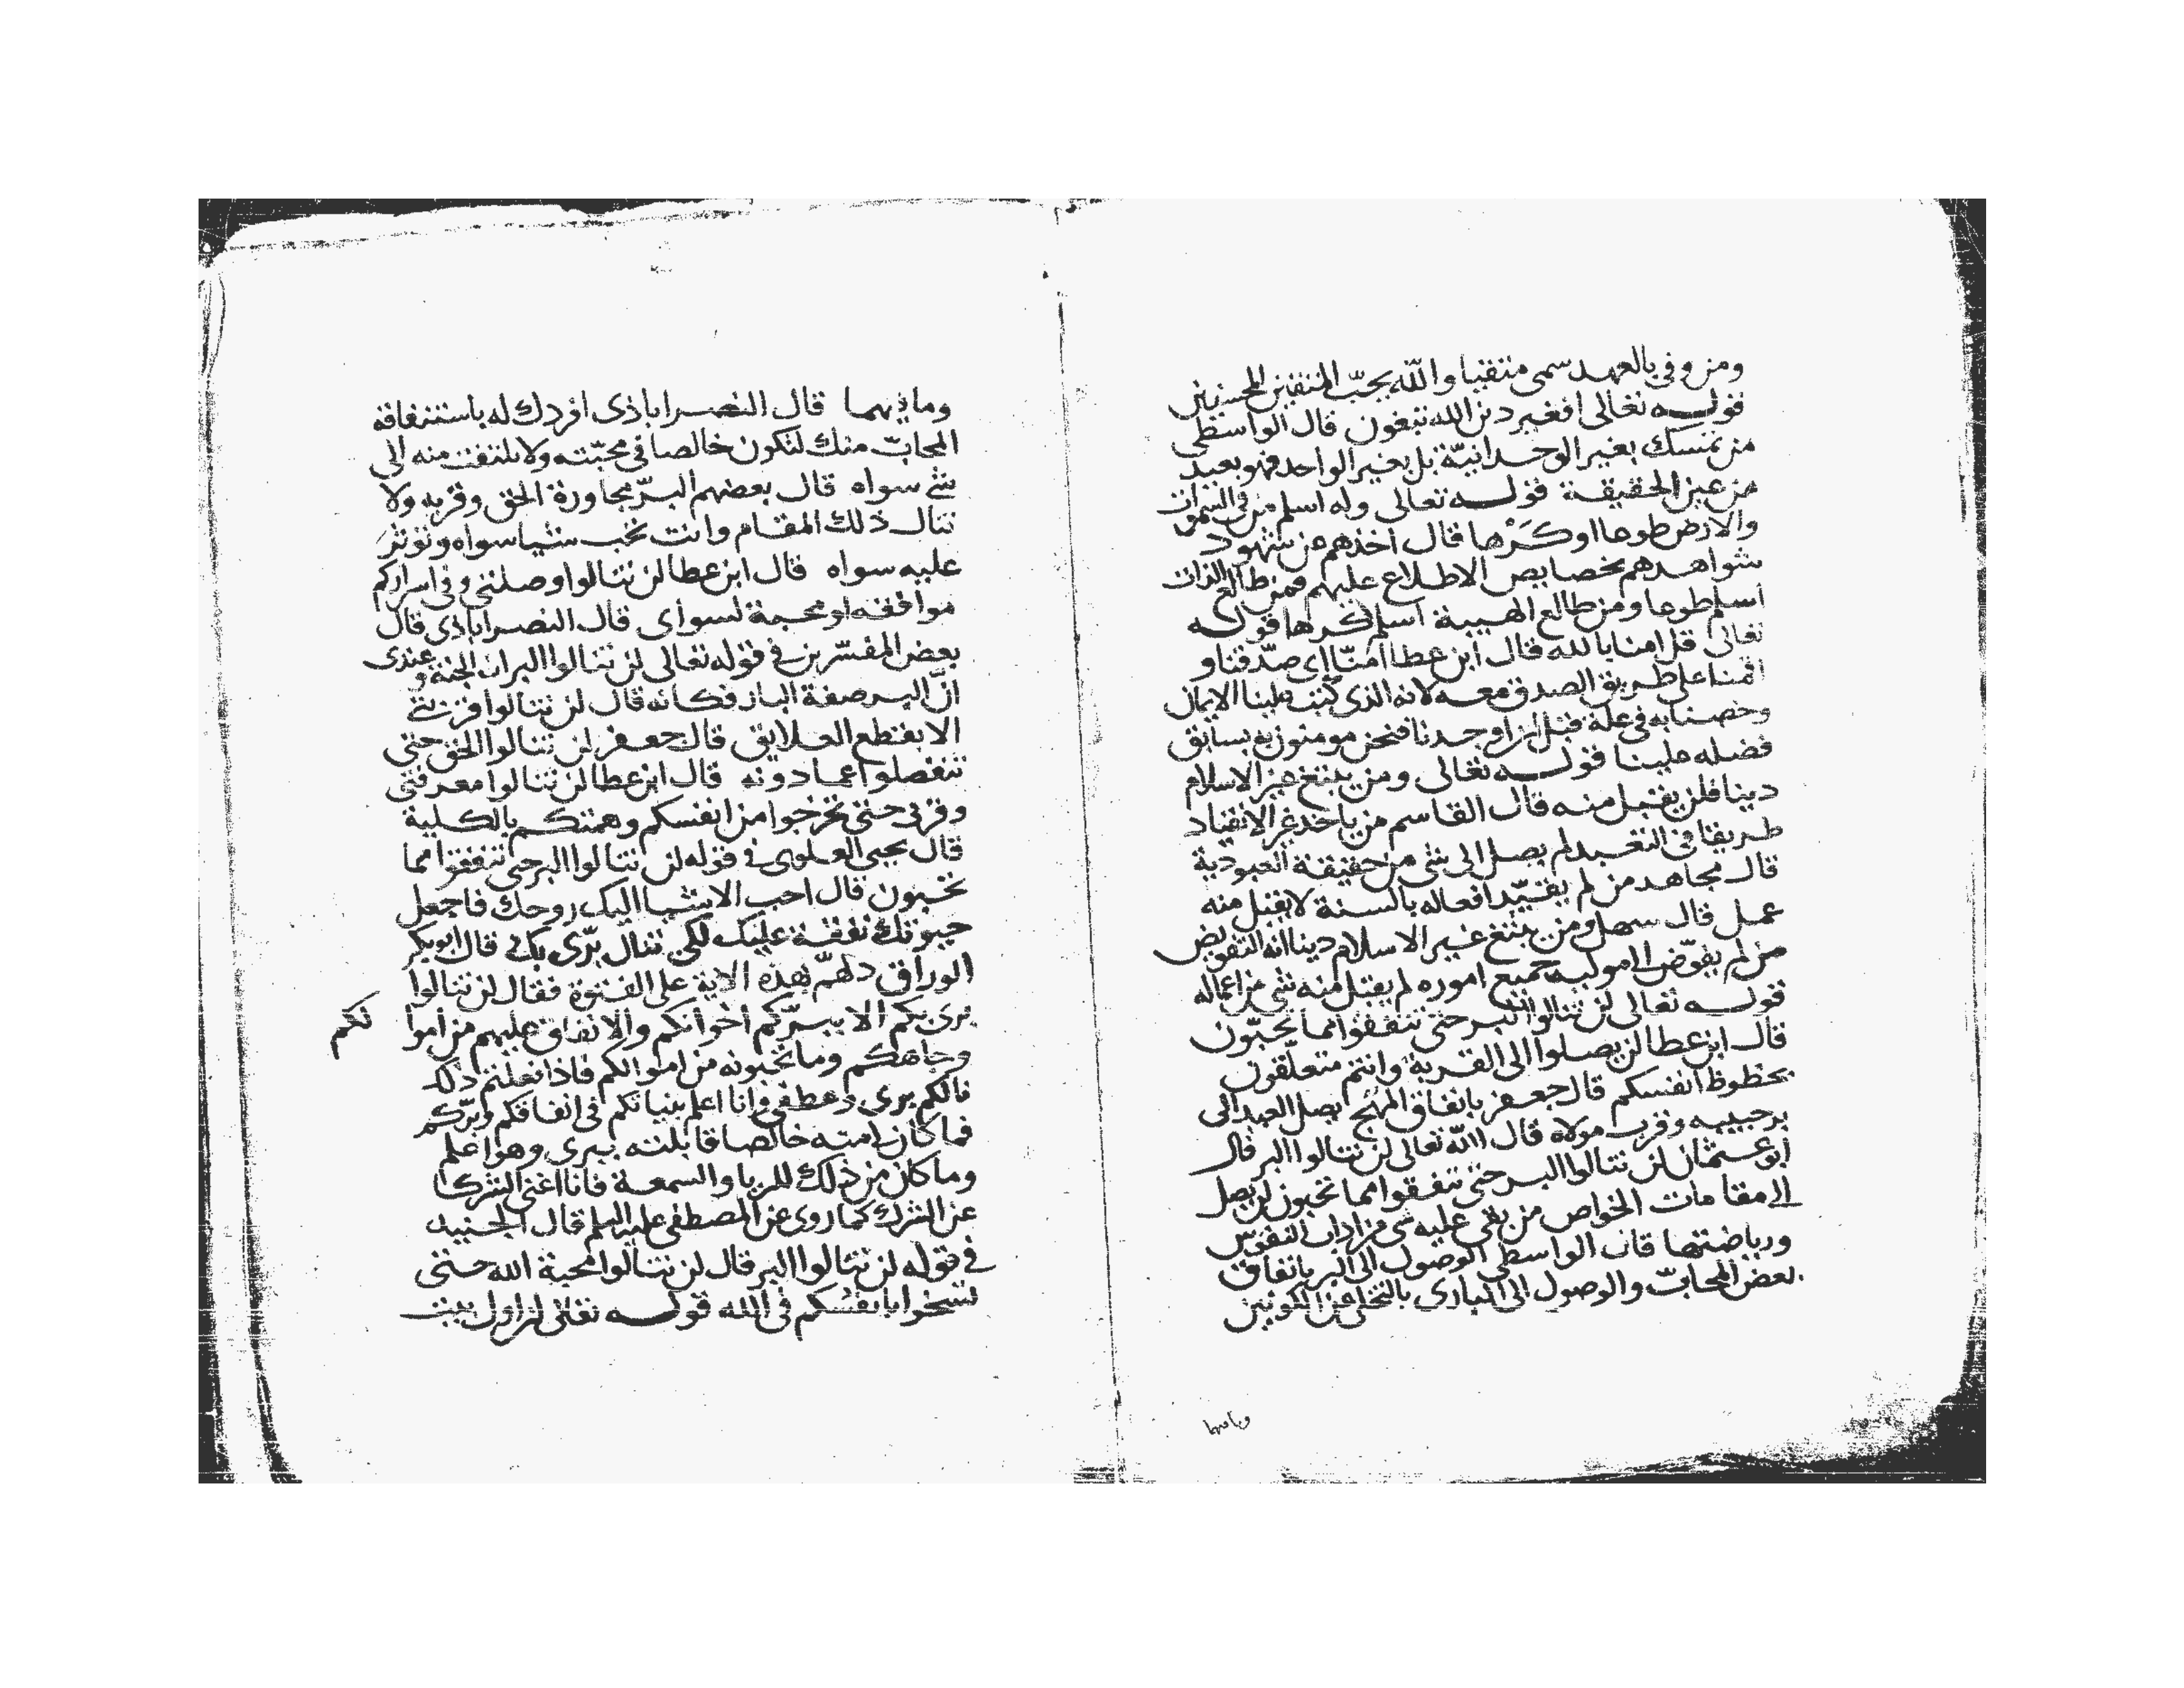 ومن وفى بالعهد سمى متقيا والله يحبّ المتقين المحسنين
قوله تعالى افغير دين الله تبغون قال الواسطى
من تمسك بغير الوحدانيّة بل بغير الواحد فهو بعيد
من عين الحقيقة قوله تعالى وله اسلم من فى السموات
والارض طوعا او كرْها قال اخذهم عن شهود
شواهدهم بخصايص الاطلاع عليهم فمن طالع الذات
اسلم طوعا ومن طالع الهيبة اسلم كرها قوله
تعالى قل امنا بالله قال ابن عطا امنّا اى صدّقنا و
اقمنا على طريق الصدق معه لانه الذى كتب علينا الايمان
وخصنا به فى علمه قبل ان اوجدنا فنحن مومنون به بسابق
فضله علينا قوله تعالى ومن يبتغ غير الاسلام
دينا فلن يقبل منه قال القاسم من ياخد غير الانقياد
طريقا فى التعبد لم يصل الى شى من حقيقة العبودية
قال مجاهد من لم يقيّد افعاله بالسنة لا يقبل منه
عمل قال سهل ومن يبتغ غير الاسلام دينا انه التفويض
من لم يفوّض الى موليه جميع اموره لم يقبل منه شى من اعماله
قوله تعالى لن تنالوا البر حتى تنفقوا مما تحبّون
قال ابن عطا لن يصلوا الى القربة وانتم متعلّقون
بحظوظ انفسكم قال جعفر بانفاق المهج يصل العبد الى
بر حبيبه وقرب مولاه قال الله تعالى لن تنالوا البر قال
ابو عثمان لن تنالوا البر حتى تنفقوا مما تحبون لن يصل
الى مقامات الخواص من بقى عليه شى من اداب النفوس
ورياضتها قال الواسطى الوصول الى البر بانفاق
بعض المحابّ والوصول الى البارى بالتخلى عن الكونين
وما فيهما قال النصراباذى افردك له باستنفاقه
المحابّ منك لتكون خالصا فى محبّته ولا تلتفت منه الى
شئ سواه قال بعضهم البرّ مجاورة الحق وقربه ولا
تنال ذلك المقام وانت تحب شيا سواه وتوثر
عليه سواه قال ابن عطا لن تنالوا وصلتى وفى اسراركم
موافقه او محبة لسواى قال النصراباذى قال
بعض المفسّرين فى قوله تعالى لن تنالوا البر ان الجنة وعندى
انّ البر صفة البار فكانه قال لن تنالوا قربتى
الا بقطع العلايق قال جعفر لن تنالوا الحق حتى
تنفصلوا عما دونه قال ابن عطا لن تنالوا معرفتى
وقربى حتى تخرجوا من انفسكم وهمتكم بالكلية
قال يحيى العلوى فى قوله لن تنالوا البر حتى تنفقوا مما
تحبون قال احب الاشيا اليك روحك فاجعل
حيوتك نفقة عليك لكى تنال برّى بك قال ابو بكر
الوراق دلهمّ بهذه الاية على الفتوة فقال لن تنالوا
برى بكم الا ببرّكم اخوانكم والانفاق عليهم من اموا
لكم
وجاهكم وما تحبونه من اموالكم فاذا فعلتم ذلك
نالكم برى وعطفى وانا اعلم بنياتكم فى انفاقكم وبرّكم
فما كان منه خالصا قابلته ببرى وهو اعلم
وما كان من ذلك للريا والسمعة فانا اغنى الشركا
عن الشرك كما روى عن المصطفى عليه السلم قال الجنيد
فى قوله لن تنالوا البر قال لن تنالوا محبة الله حتى
تسخوا بانفسكم فى الله قوله تعالى ان اول بيت